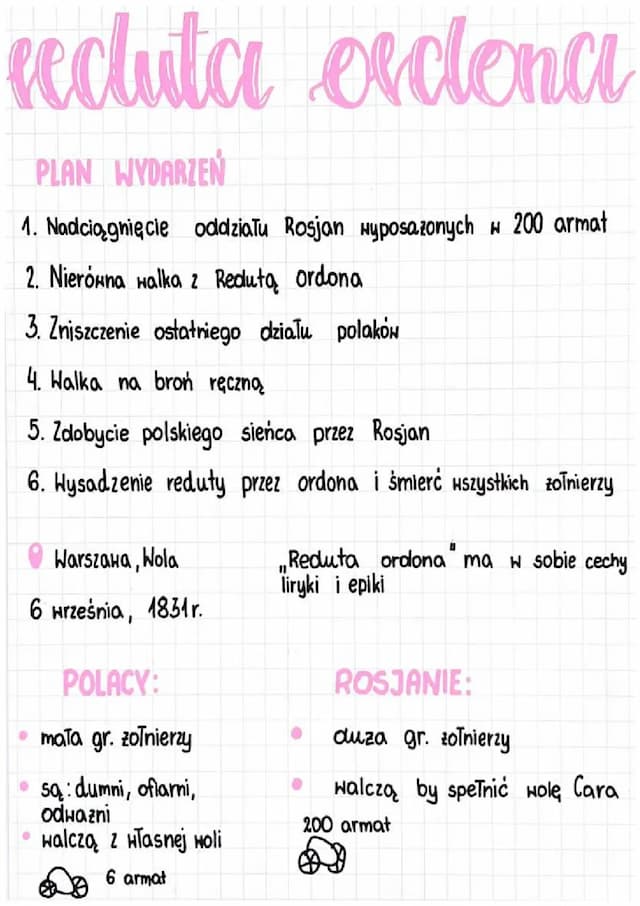 reduta ordona
PLAN WYDARZEŃ
1. Nadciągnięcie oddziału Rosjan wyposażonych w 200 armat
2. Nierówna walka z Redutą ordona
3. Zniszczenie ostatniego działu polaków
4. Walka na broń ręczną
5. Zdobycie polskiego sieńca przez Rosjan
6. Wysadzenie reduty przez ordona i śmierć wszystkich żołnierzy
Warszawa, Wola
6 września, 1831 r.
„Reduta ordona" ma w sobie cechy
liryki i epiki
POLACY:
mała gr. żołnierzy
są: dumni, ofiarni,
odważni
walczą z własnej woli
6 armat
ROSJANIE:
duża gr. żołnierzy
walczą by spełnić wolę Cara
200 armat